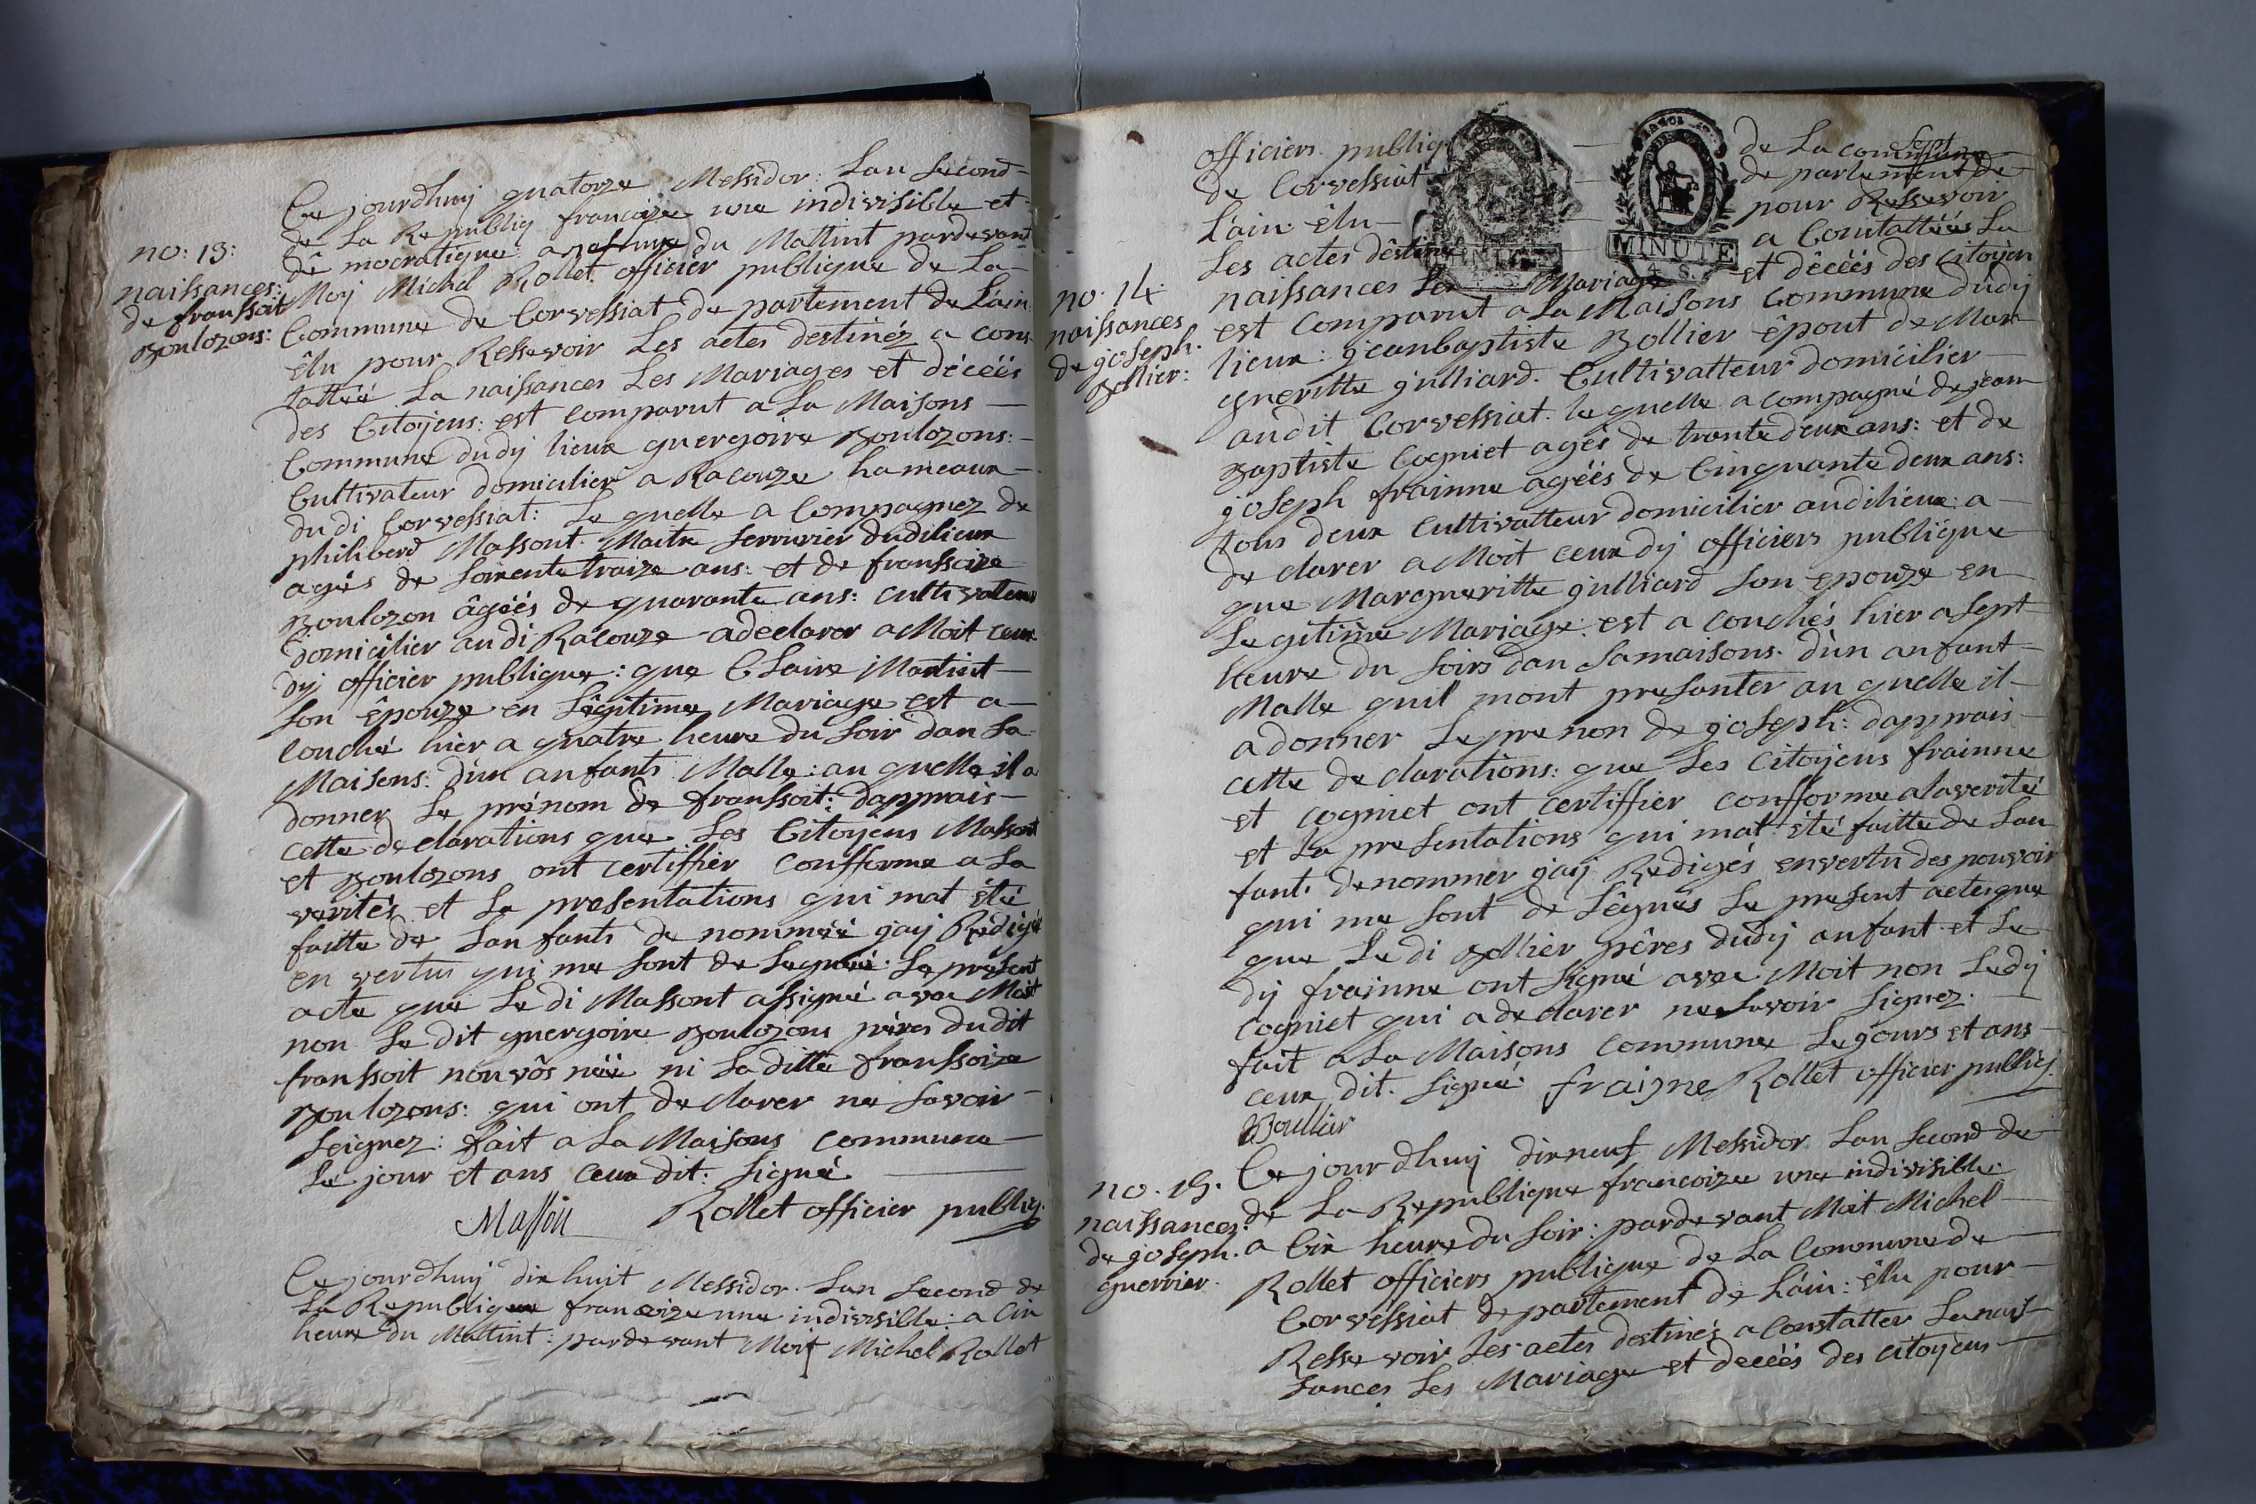 no: 13:
naissances:
de franssoit
Boulozons:
Ce jourdhuy quatorze Messidor: Lan second
de La Republiq francaize une indivisible et
dê mocratique a du Mattint pardevant
Moy Michel Rollet officiér publique de La
Commune de Corvessiat de partement de Lain
êlu pour Ressevoir Les actes destinéz a cons
tattéé La naissances Les Mariages et décéés
des Citoyens: est comparut a La Maisons
Commune dudy lieux guergoire Boulozons:
Cultivateur domicilier a Racouze hameaux
du di Corvessiat: Le quelle a Compagnez de
philiberd Massont Maitre serrurier dudilieux
agés de soixente traize ans: et de franssoize
Boulozon âgéés de quarante ans: cultivateur
domicilier au di Racouze adeclarer a Moit ceux
dy officier publique: que Claire Martint
son êpouze en Lêgitime Mariage est a
couché hier a quatre heure du soir dan sa
Maisons: d'un anfants Malle: au quelle il a
donner Le prénom de franssoit: dapprais
cette declarations que Les Citoyens Massont
et Boulozons ont certiffiér confforme a La
verités et La presentations qui mat été
faitte de Lanfants de nomméé jay Rédigé
en vertu qui me sont de Leguéé Le présent
acte que Le di Massont assigné avec Moit
non Le dit guergoire Boulozons péres du dit
franssoit nouvôs néé ni La ditte franssoize
Boulozons: qui ont declarer ne savoir
seignez: fait a La Maisons commune
Le jour et ans ceux dit: signé
Masson Rollet officier publiq.
Ce jourdhuy dix huit Messidor Lan second de
La Republique francoize une indivisible: a Cin
heure du Mattint: pardevant Moit Michel Rollet
officiers publiq de La commune
de Corvessiat de partement de
Lain êlu pour Ressevoir
Les actes déstiné a Constattéés La
no. 14.
naissances
de joseph.
Bollier:
naissances Les Mariage et décéés des Citoyen
est comparut a La Maisons Commune dudy
lieux: jeanbaptiste Bollier êpout de Mar
gueritte julliard. Cultivatteur domicilier
audit Corvessiat. le quelle a compagné de jean
Baptiste Cogniet agés de trante deux ans: et de
joseph frainne agéés de Cinquante deux ans:
tous deux cultivatteur domicilier audilieux: a
de clarer a Moit ceux dy officiers publique
que Margueritte julliard son epouze en
Legitime Mariage: est a couchés hier a sept
heure du soirs dan samaisons. d'un anfant
Malle quil mont presanter au quelle il
a donner Le prenon de joseph: dapprais
cette declarations: que Les Citoyens frainne
et cogniet ont certiffier confforme alaverité
et La presentations qui mat été faitte de Lan
fant. denommer jay Redigés envertu des pouvoir
qui me sont de Légués Le présent acte que
que Le di Bollier péres dudy anfant et Le
dy frainne ont signé avec Moit non Ledy
cogniet qui a declarer ne savoir signez.
fait a La Maisons commune Le jours et ans
ceux dit. signé: fraigne Rollet officier publiq.
Boullier
no. 15.
naissances:
de joseph.
guerrier.
Ce jourdhuy dix neuf Messidor Lan second de
de La Republique francoize une indivisible
a Cin heure du soir: pardevant Moit Michel
Rollet officiers publique de La Commune de
Corvessiat departement de Lain: êlu pour
Ressevoir Les actes destinés a constatter La nais
sances Les Mariage et decéés des citoyens
MINUTE
4. S.